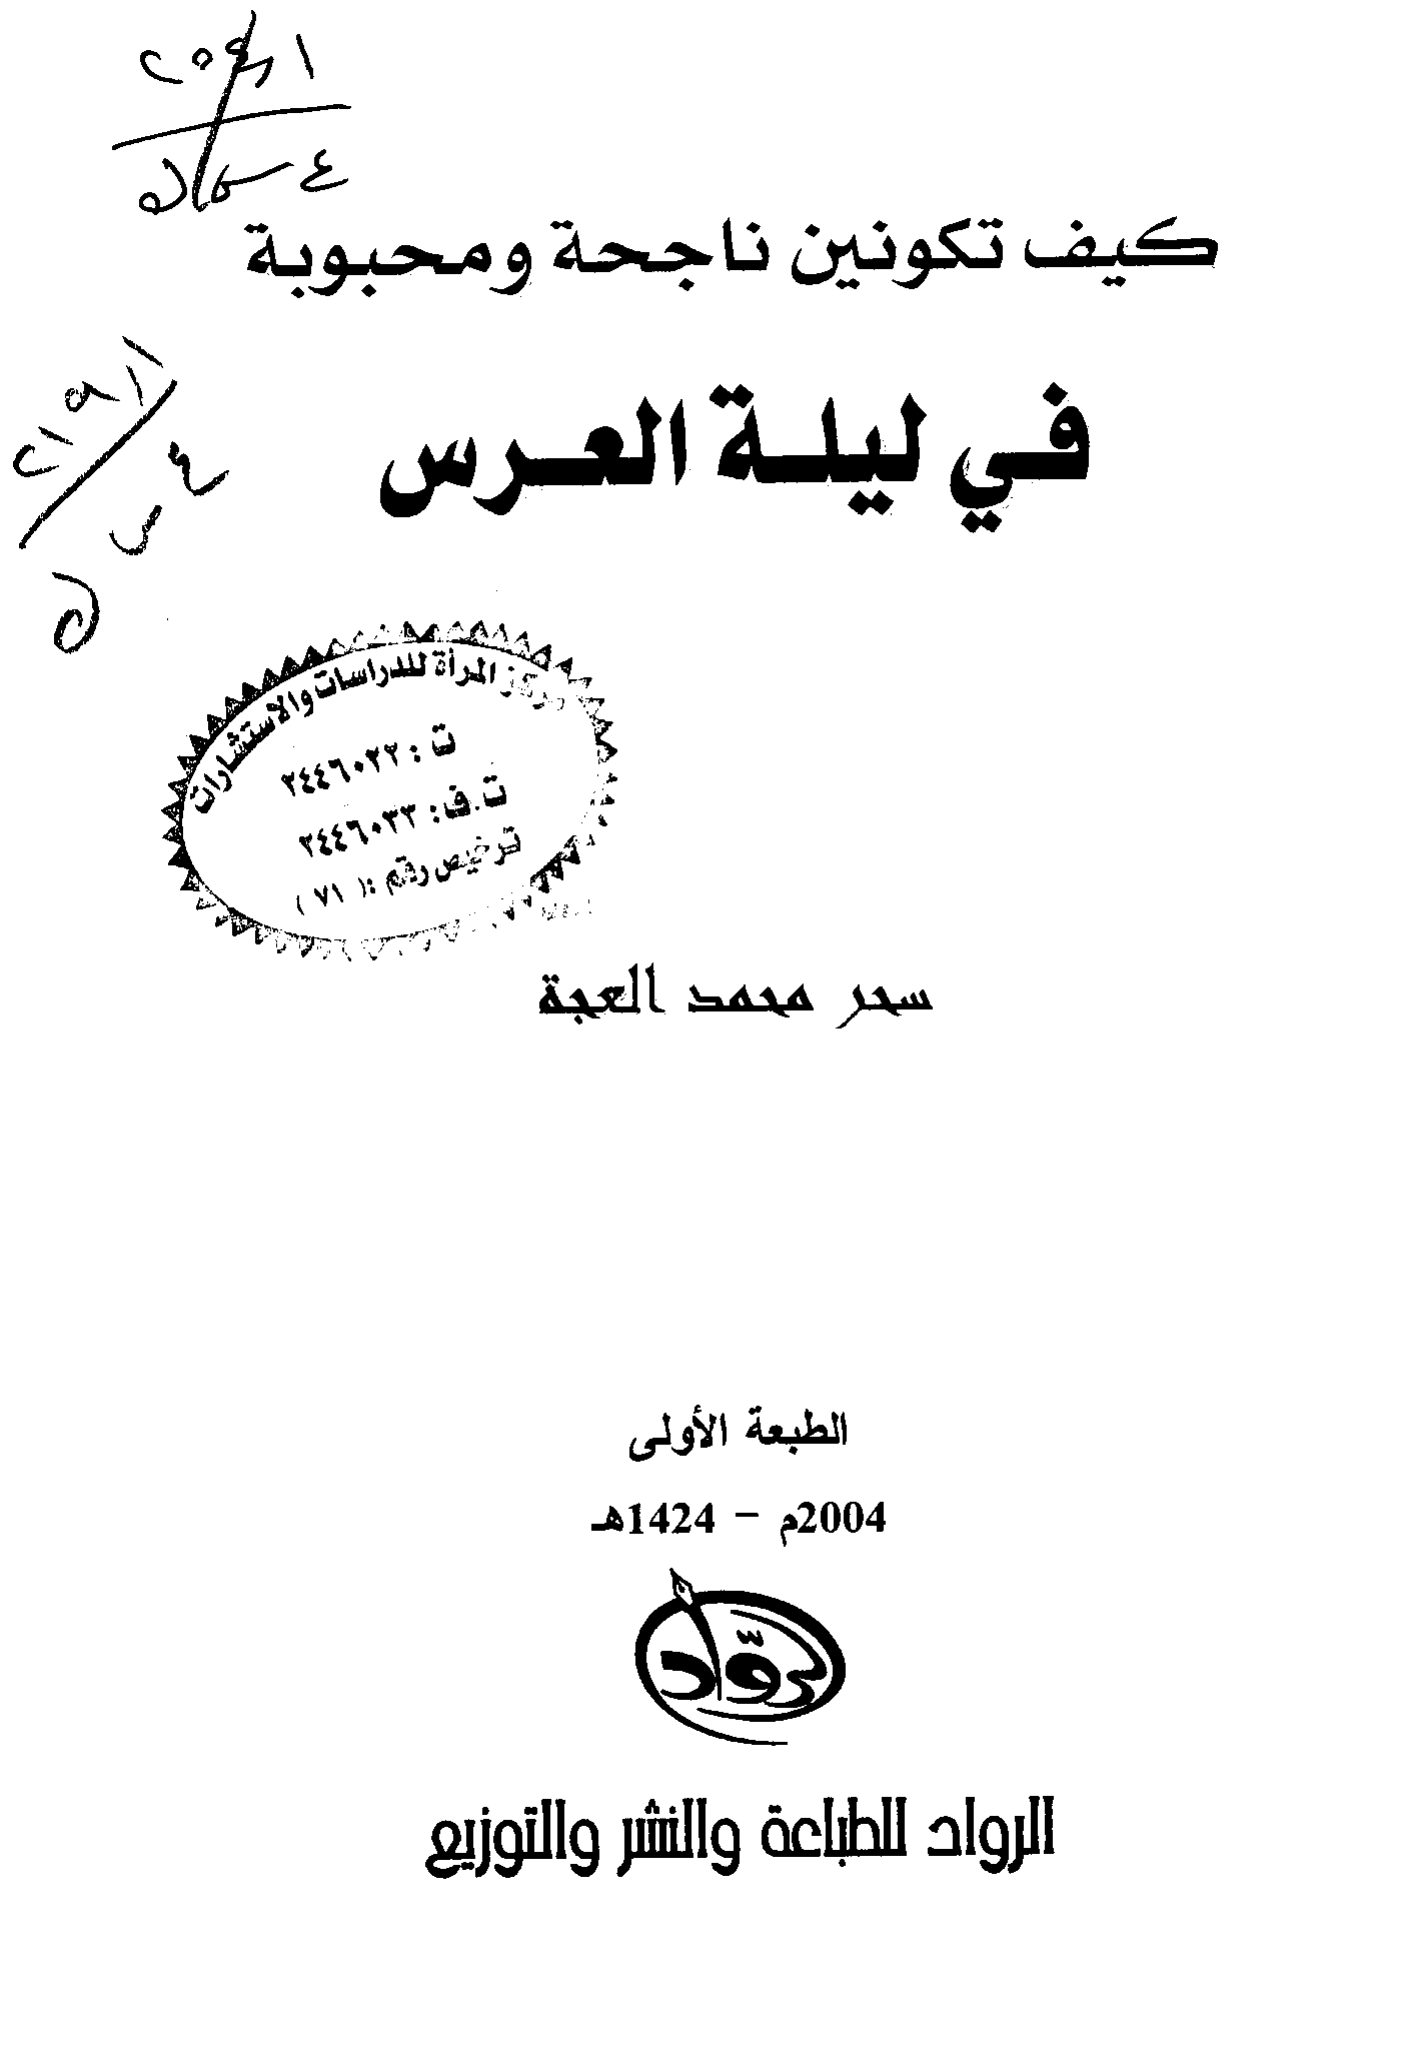 كيف تكونين ناجحة ومحبوبة
في ليلة العرس
مركز المرأة للدراسات والاستشارات
ت : ٢٤٤٦٠٢٢
ت.ف: ٢٤٤٦٠٣٣
ترخيص رقم :( ٧١ )
سحر محمد العجة
الطبعة الأولى
2004م – 1424هـ
رواد
الرواد للطباعة والنشر والتوزيع